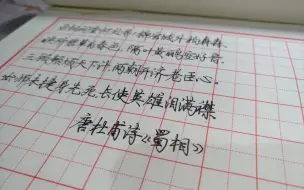 丞相祠堂何处寻,锦官城外柏森森。
映阶碧草自春色,隔叶黄鹂空好音。
三顾频烦天下计,两朝开济老臣心。
出师未捷身先死,长使英雄泪满襟
唐杜甫诗《蜀相》